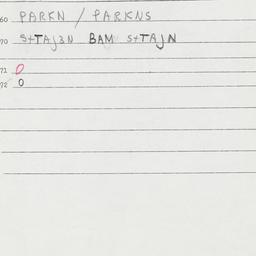 60 PARKN / PARKNS
70 S+TAJ3N BAM S+TAJN
71 0
72 0